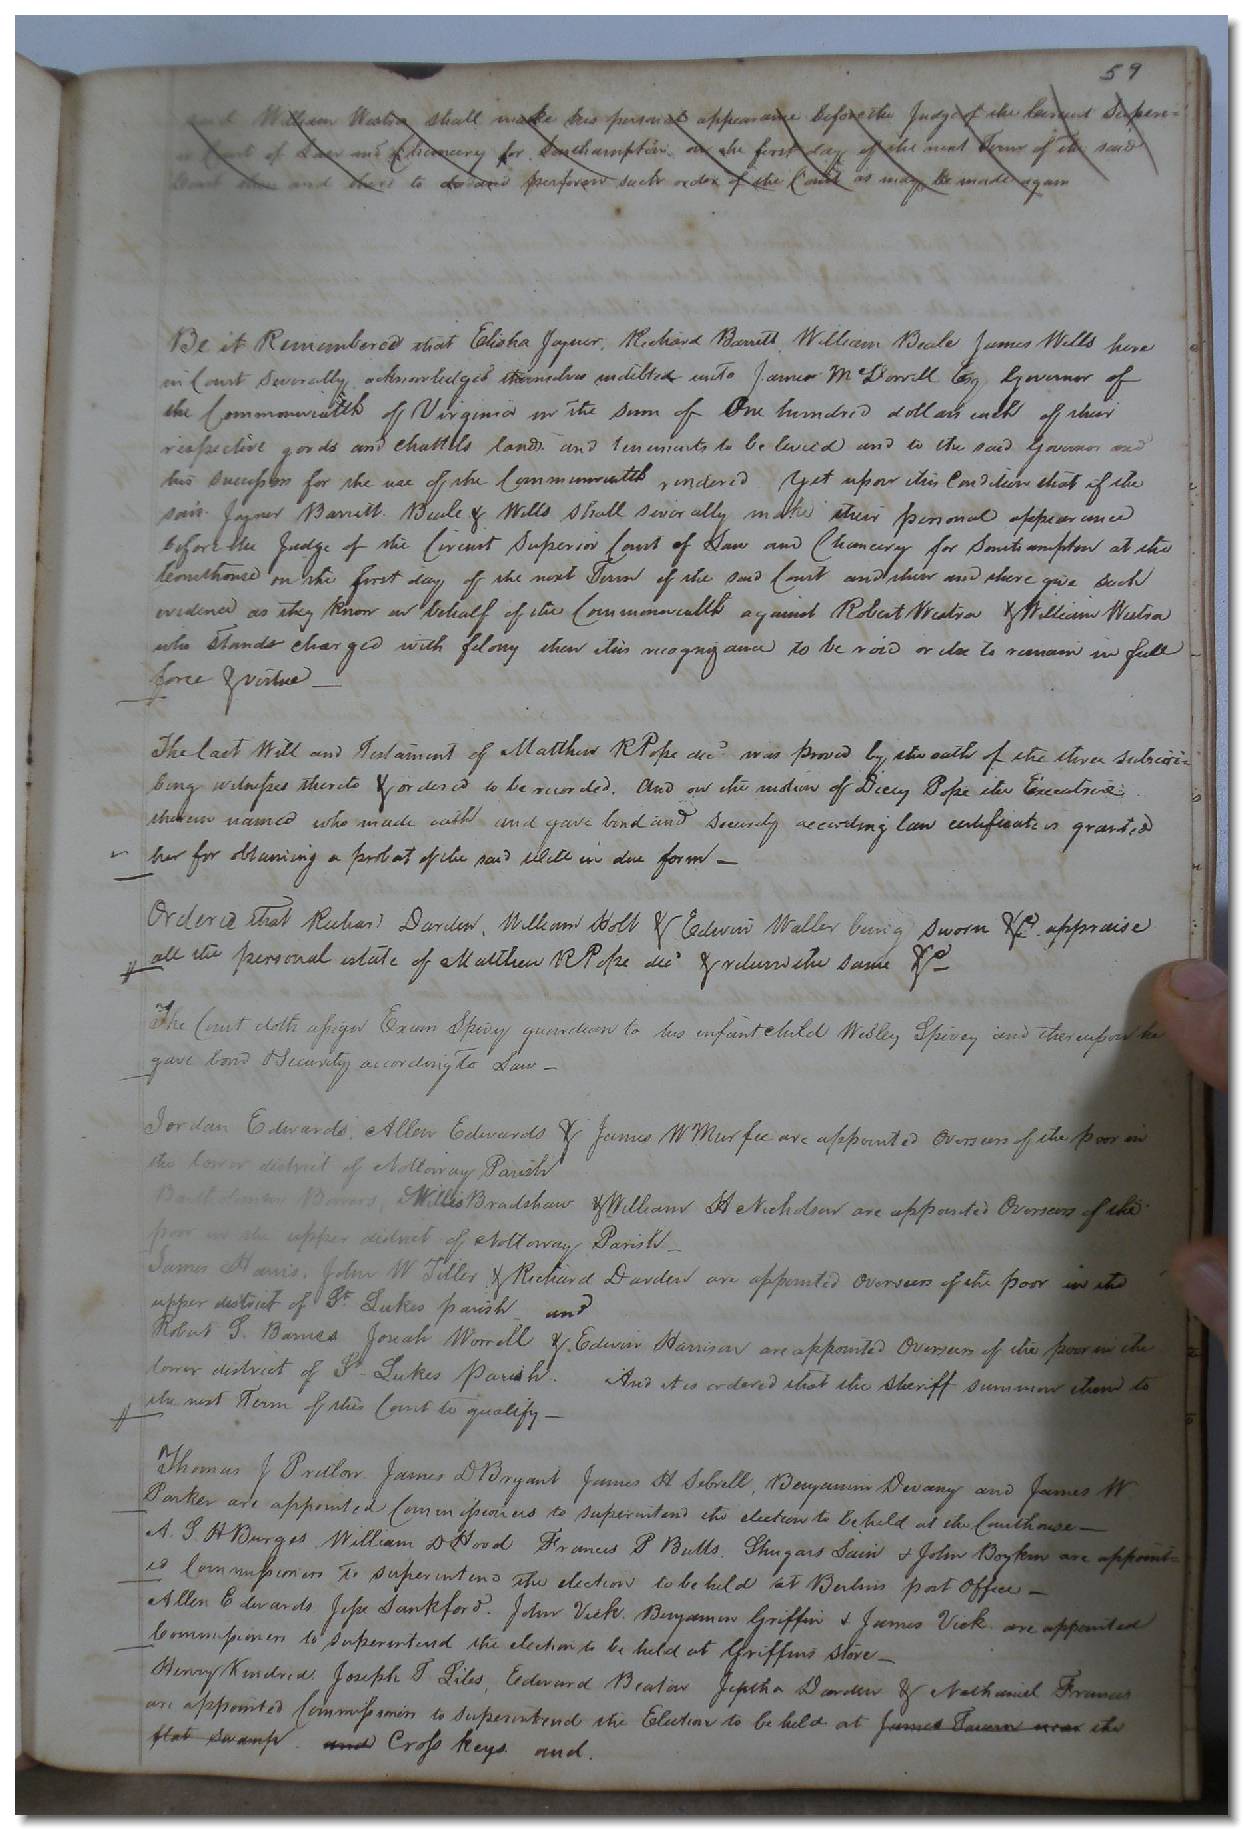 59
said William Westra shall make his personal appearance before the Judge of the Circuit Superi=
or Court of Law and Chancery for Southampton on the first day of the next Term of the said
Court then and there to do and perform such order of the Court as may be made again
Be it Remembered that Elisha Joyner, Richard Barrett William Beale James Wells here
in Court Severally acknowledged themselves indebted unto James McDowell Esq Governor of
the Commonwealth of Virginia in the Sum of One hundred dollars each of their
respective goods and chattels lands and tenements to be levied and to the said Governor and
his successors for the use of the Commonwealth rendered Yet upon this Condition that if the
said Joyner Barrett Beale & Wells Shall severally make their personal appearance
before the Judge of the Circuit Superior Court of Law and Chancery for Southampton at the
Courthouse on the first day of the next Term of the said Court and then and there give such
evidence as they know on behalf of the Commonwealth against Robert Westra & William Westra
who stands charged with felony then this recognizance to be void or else to remain in full
force & virtue
The last Will and Testament of Matthew R Pope decd was proved by the oath of the three subscri=
bing witnesses thereto & ordered to be recorded. And on the motion of Dicey Pope the Executrix
therein named who made oath and gave bond and Security according law certificate is granted
her for obtaining a probat of the said Will in due form
Ordered that Richard Darden, William Holt & Edwin Waller being sworn &c appraise
all the personal estate of Matthew R Pope decd & return the same &c
The Court doth assign Exum Spivey guardian to his infant child Wesley Spivey and thereupon he
gave bond & Security according to Law
Jordan Edwards, Allen Edwards & James W Murfee are appointed Overseers of the poor in
the lower district of Nottoway Parish
Bartholomew Bowers, Willis Bradshaw & William H Nicholson are appointed Overseers of the
poor in the upper district of Nottoway Parish
James Harris, John W Tiller & Richard Darden are appointed overseers of the poor in the
upper district of St Lukes parish and
Robert S. Barnes Josiah Worrell & Edwin Harrison are appointed Overseers of the poor in the
lower district of St Lukes Parish. And it is ordered that the Sheriff summon them to
the next Term of this Court to qualify
Thomas J Pretlow James D Bryant James H Sebrell, Benjamin Devany and James W
Parker are appointed Commissioners to superintend the election to be held at the Courthouse
A. S. H Burges William D Hood Francis P Butts. Shugars Lain & John Boykin are appoint=
ed Commissioners to superintend the election to be held at Berlins post Office
Allen Edwards Jesse Lankford. John Vick. Benjamin Griffin & James Vick are appointed
Commissioners to superintend the election to be held at Griffins Store
Henry Kindred Joseph T Liles, Edward Beaton Jeptha Darden & Nathaniel Francis
are appointed Commissioners to superintend the Election to be held at James Tavern near the
flat swamp and Cross keys and.